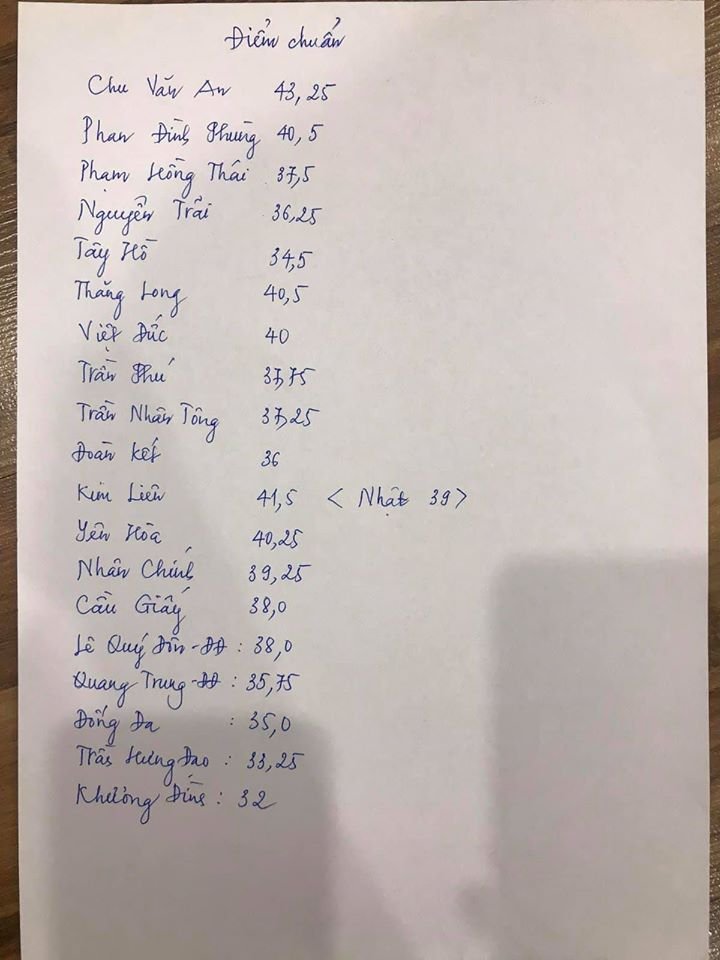 Điểm chuẩn
Chu Văn An 43,25
Phan Đình Phùng 40,5
Phạm Hồng Thái 37,5
Nguyễn Trãi 36,25
Tây Hồ 34,5
Thăng Long 40,5
Việt Đức 40
Trần Phú 37,75
Trần Nhân Tông 37,25
Đoàn Kết 36
Kim Liên 41,5 < Nhật 39>
Yên Hòa 40,25
Nhân Chính 39,25
Cầu Giấy 38,0
Lê Quý Đôn - ĐĐ : 38,0
Quang Trung - ĐĐ : 35,75
Đống Đa : 35,0
Trần Hưng Đạo : 33,25
Khương Đình : 32